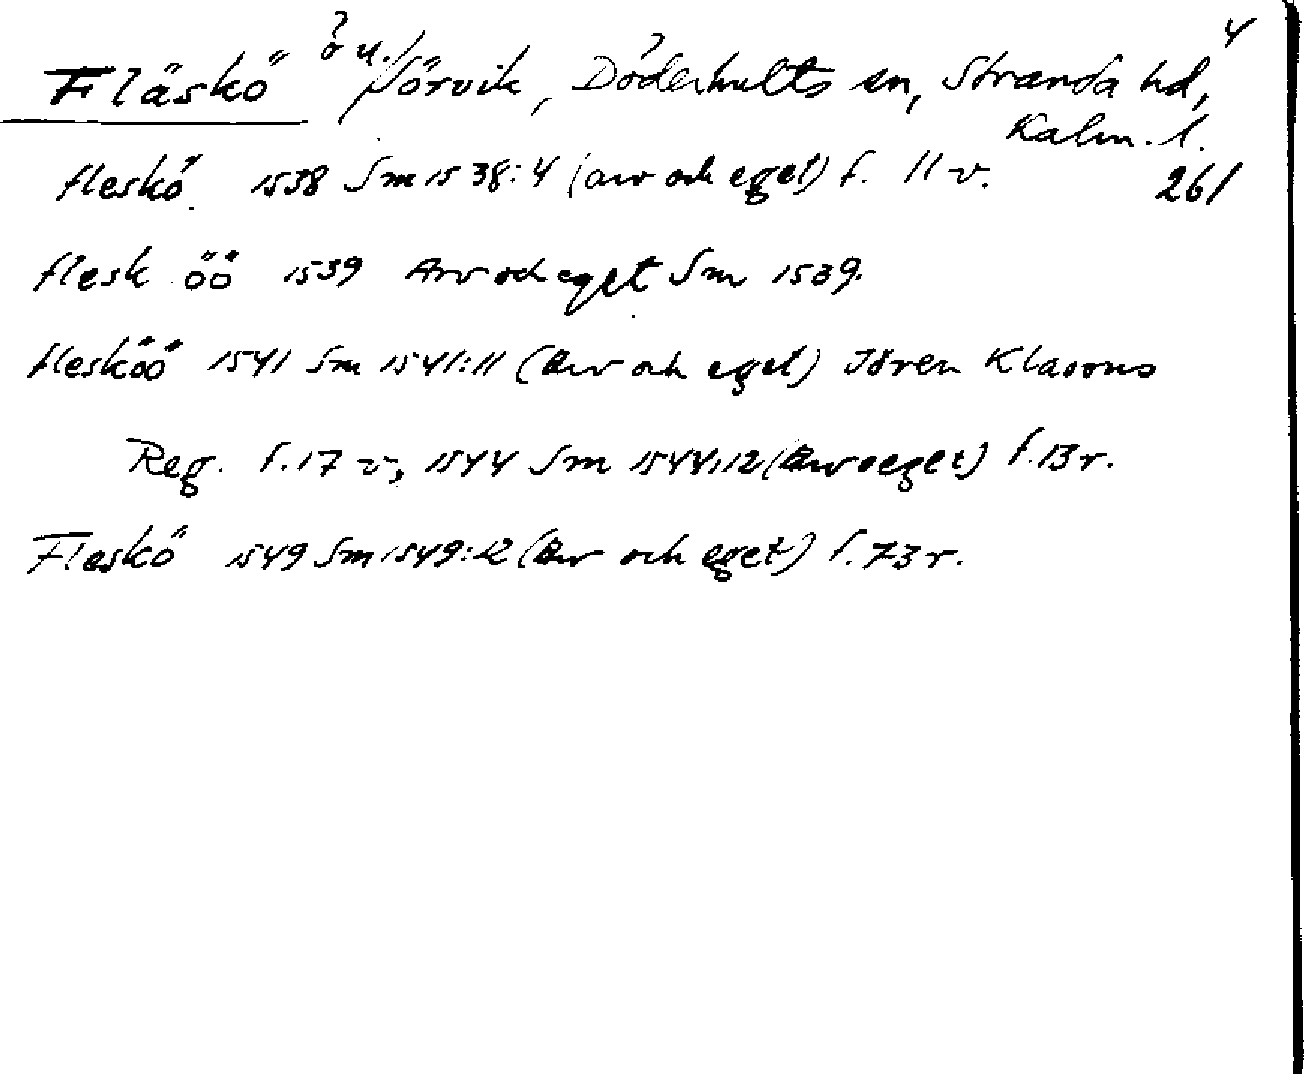 4
Fläskö ? ö u./ Sörvik, Döderhults sn, Stranda hd,
Kalm. l.
fleskö 1538 Sm 1538:4 (arv och eget) f. 11 v. 261
flesk öö 1539 Arv och eget Sm 1539.
flesköö 1541 Sm 1541:11 (Arv och eget) Jören Klasons
Reg. f. 17 v, 1544 Sm 1544:12 (Arv o eget) f. 13 r.
Fleskö 1549 Sm 1549:12 (Arv och eget) f. 73 r.